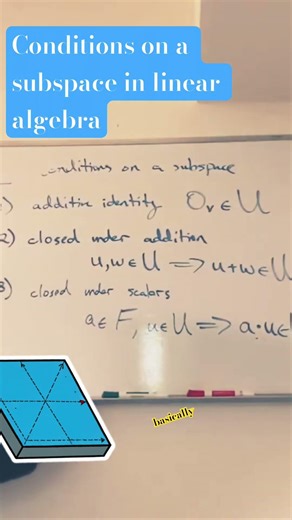 Conditions on a
subspace in linear
algebra
onditions on a subspace
) additive identity 0ᵥ ∈ U
2) closed under addition
u,w∈U ⟹ u+w∈U
3) closed under scalars
a∈F, u∈U ⟹ a·u∈
basically